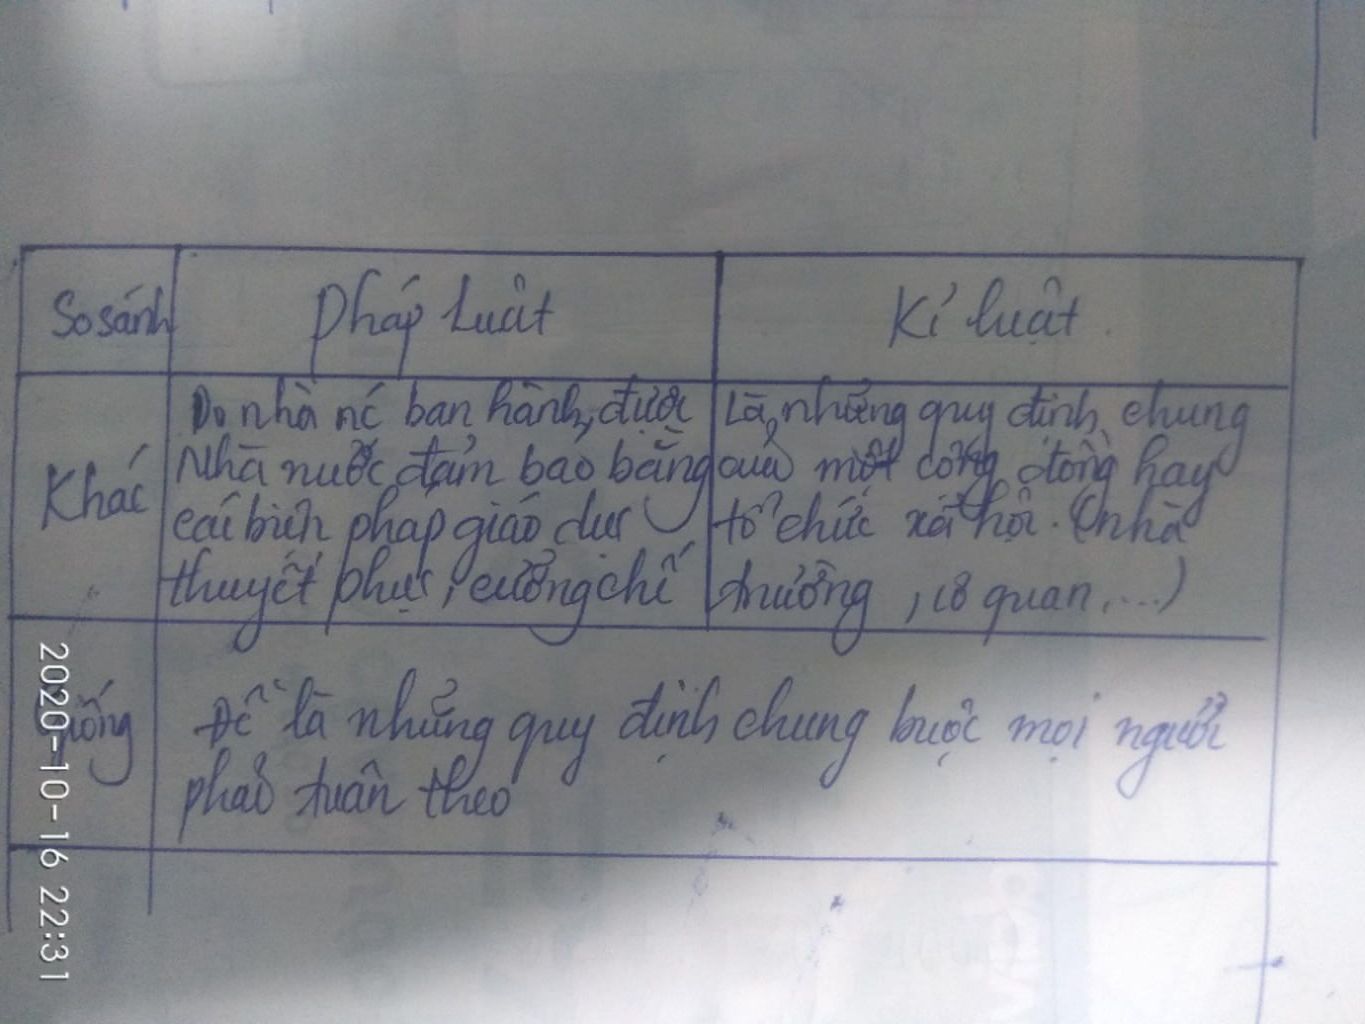 So sánh
Pháp luật
Kỉ luật
Khác
Do nhà nc ban hành, được
Nhà nước đảm bảo bằng
các biện pháp giáo dục
thuyết phục, cưỡng chế
Là những quy định chung
của một cộng đồng hay
tổ chức xã hội. (nhà
trường, cơ quan,...)
Giống
Đề là những quy định chung buộc mọi người
phải tuân theo
2020-10-16 22:31